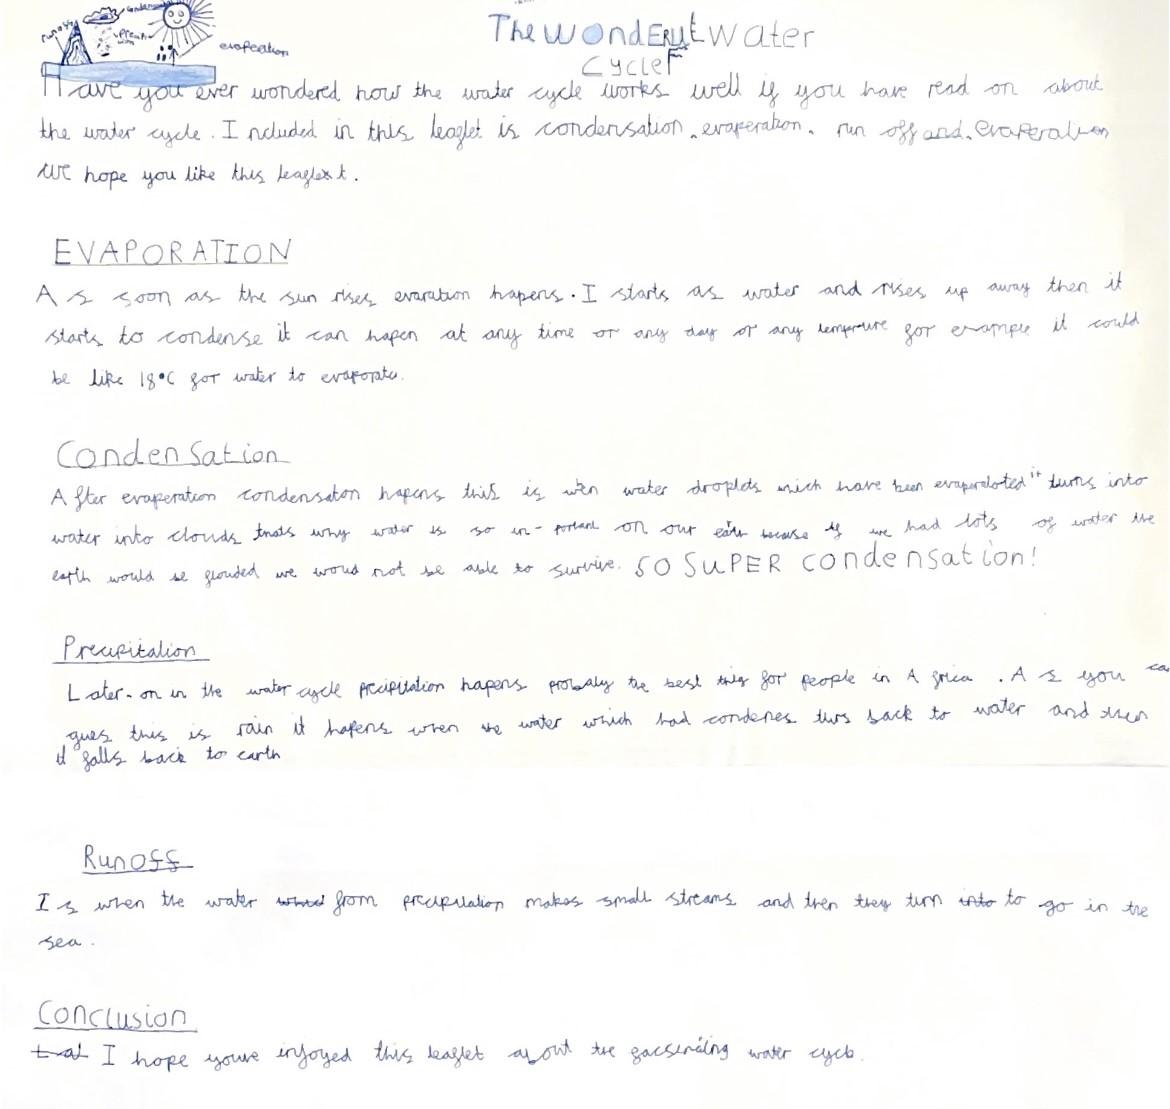 condensation
runoff
evaperation
The WondERful Water
CYcle
Have you ever wondered how the water cycle works well if you have read on about
the water cycle. Included in this leaflet is condensation, evaperation, run off and evaperation
we hope you like this leaflext.
EVAPORATION
As soon as the sun rises evaration hapens. I starts as water and rises up away then it
starts to condense it can hapen at any time or any day or any tempreure for exampe it could
be like 18°C for water to evaporate.
Condensation
After evaperation condensaton hapens this is wen water droplets which have been evaperoloted it turns into
water into clouds thats why water is so in-portant on our earth because if we had lots of water the
earth would be flouded we woud not be able to survive. SO SUPER condensation!
Precipitation
Later-on in the water cycle precipitation hapens probaly the best thig for people in Africa. As you ca
gues this is rain it hapens when the water which had condenes turs back to water and then
it falls back to earth
Runoff
Is when the water from precipitation makes small streams and then they turn into to go in the
sea.
Conclusion
tat I hope youve injoyed this leaflet about the facsenating water cycle.